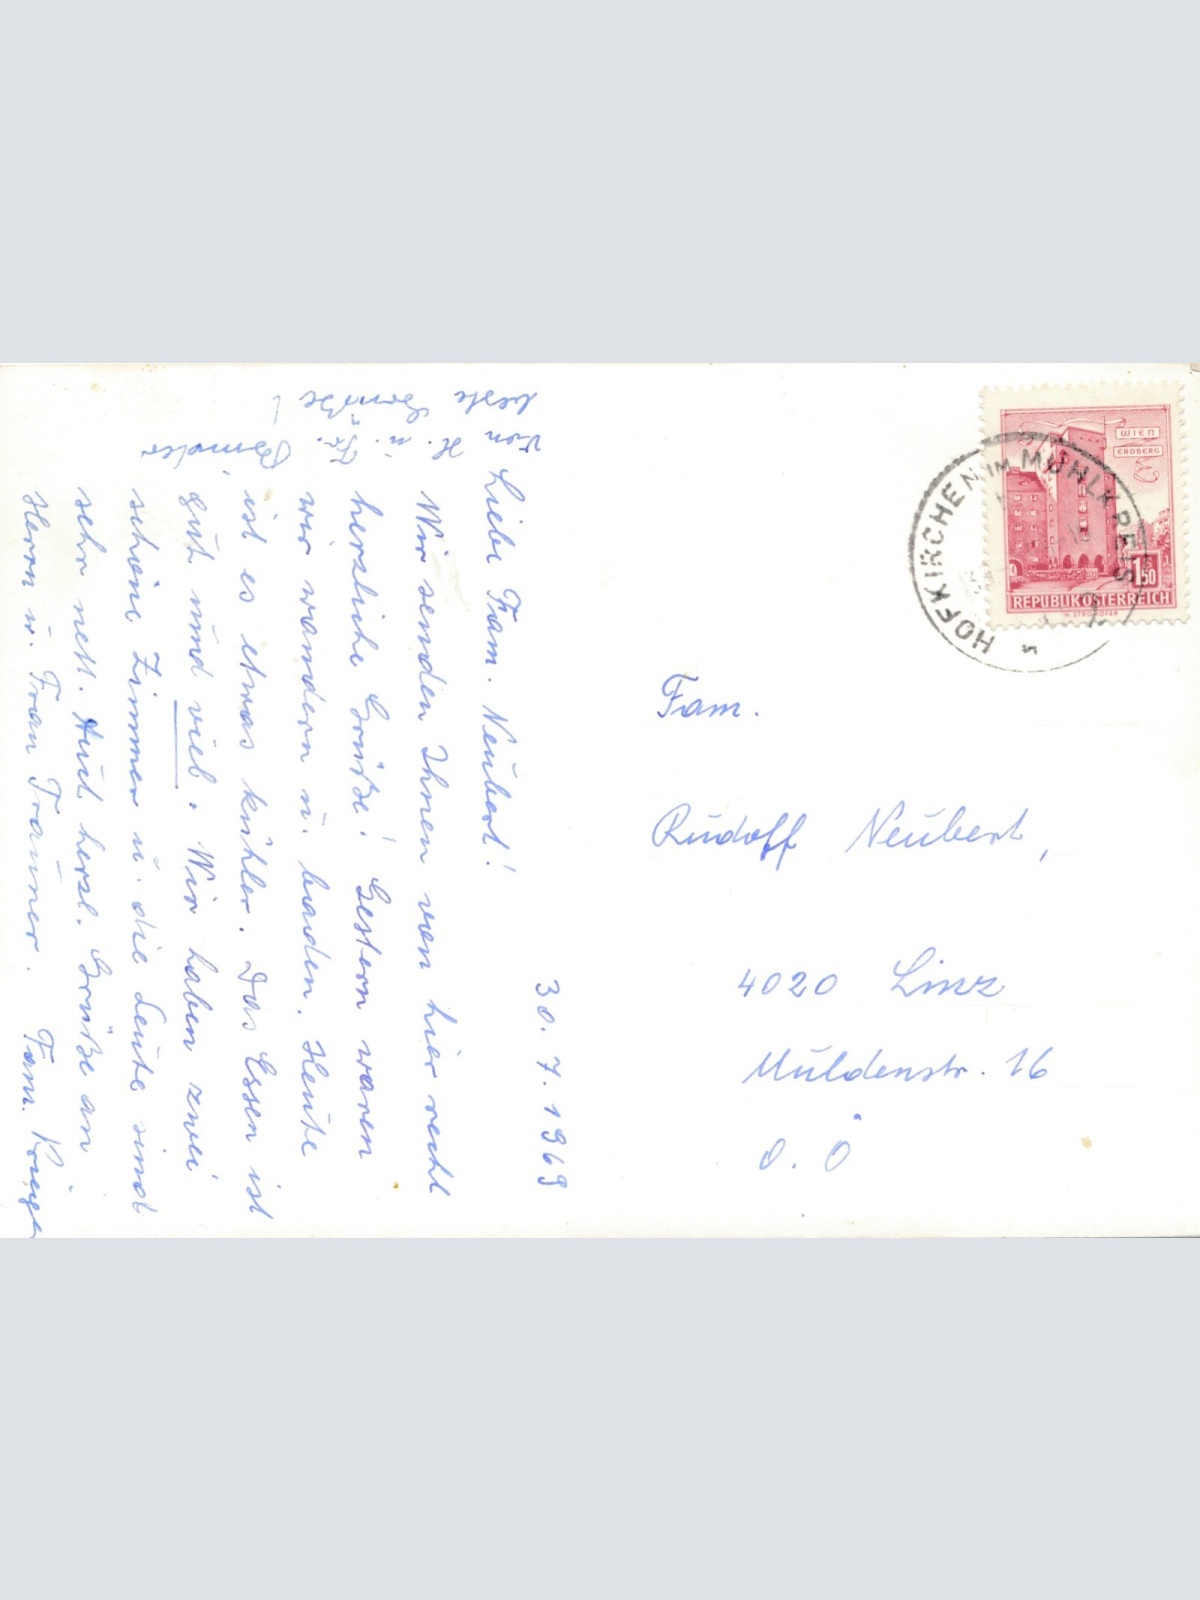 30. 7. 1969
Liebe Fam. Neubert!
Wir senden Ihnen von hier recht
herzliche Grüße! Gestern waren
wir wandern u. baden. Heute
ist es etwas kühler. Das Essen ist
gut und viel. Wir haben zwei
schöne Zimmer u. die Leute sind
sehr nett. Auch herzl. Grüße an
Herrn u. Frau Trauner. Fam.
beste Grüße!
Von H. u. Fr.
WIEN
ERDBERG
1.50
REPUBLIK ÖSTERREICH
HOFKIRCHEN IM MÜHLKREIS
Fam.
Rudolf Neubert,
4020 Linz
Muldenstr. 16
O. Ö